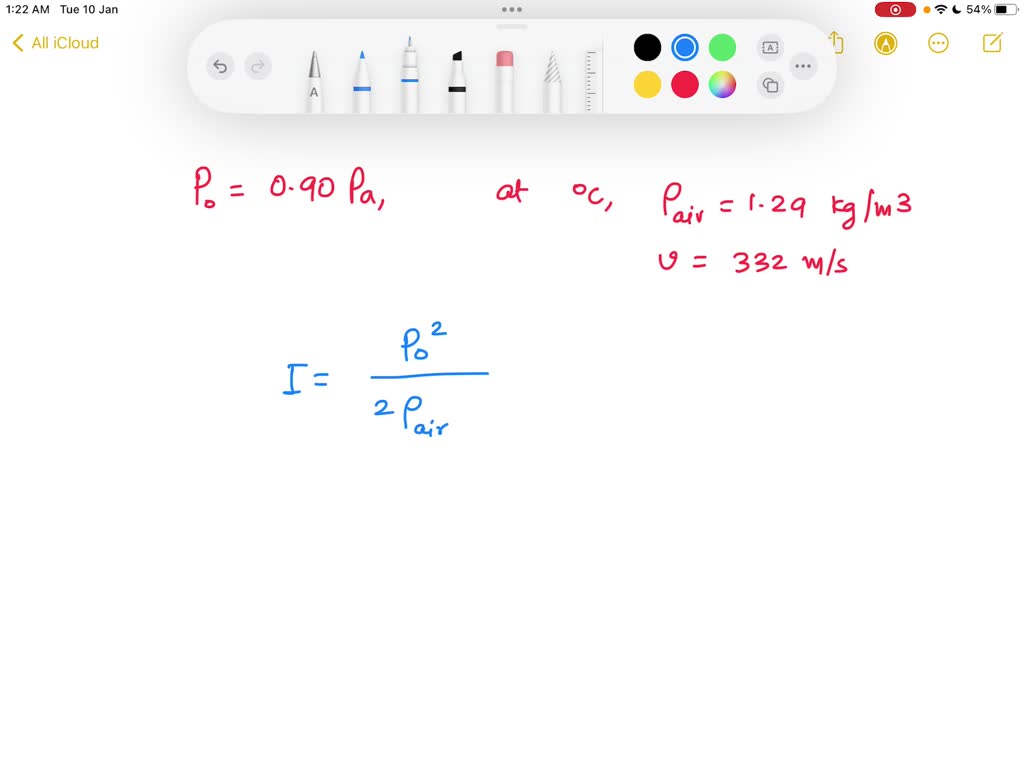 1:22 AM Tue 10 Jan
54%
All iCloud
A
A
A
P₀ = 0.90 Pa, at 0°C, ρair = 1.29 kg/m3
v = 332 m/s
I = P₀² / 2 ρair